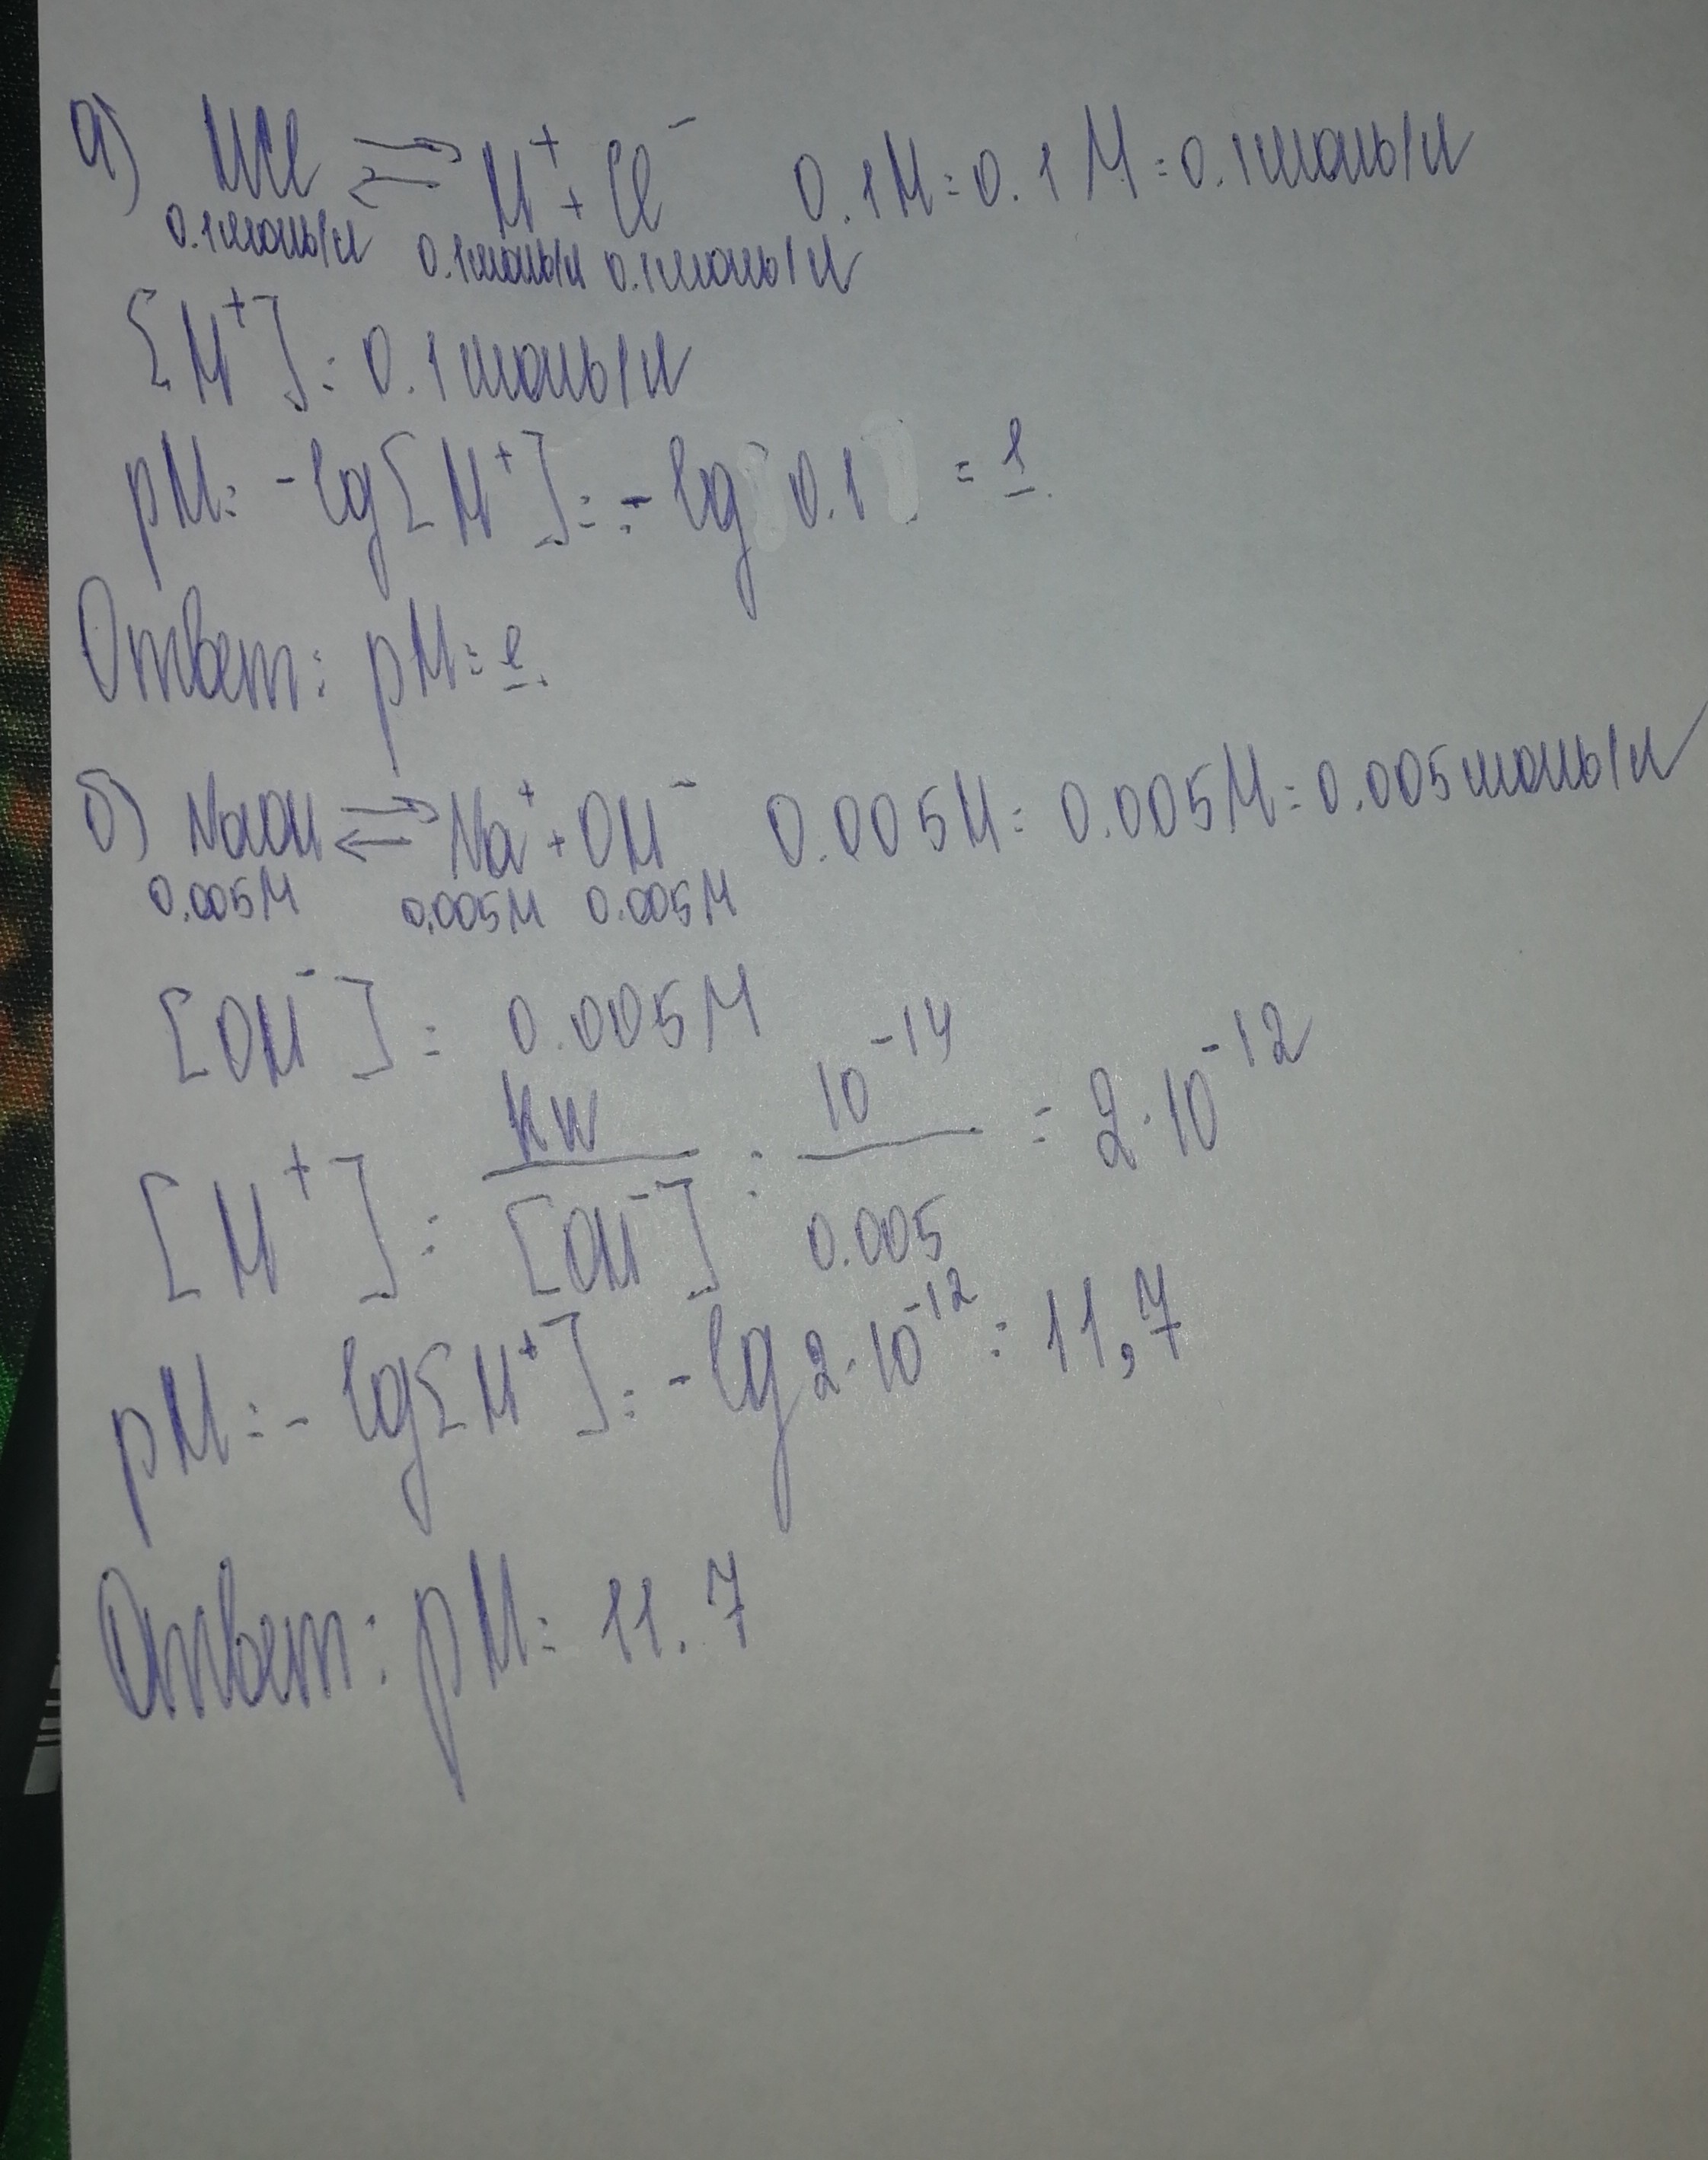 а) HCl ⇌ H⁺ + Cl⁻ 0.1M = 0.1M = 0.1моль/л
0.1моль/л 0.1моль/л 0.1моль/л
[H⁺] = 0.1моль/л
pH = -lg[H⁺] = -lg 0.1 = 1
Ответ: pH = 1.
б) NaOH ⇌ Na⁺ + OH⁻ 0.005M = 0.005M = 0.005моль/л
0.005M 0.005M 0.005M
[OH⁻] = 0.005M
[H⁺] = Kw / [OH⁻] = 10⁻¹⁴ / 0.005 = 2·10⁻¹²
pH = -lg[H⁺] = -lg 2·10⁻¹² = 11,7
Ответ: pH = 11.7